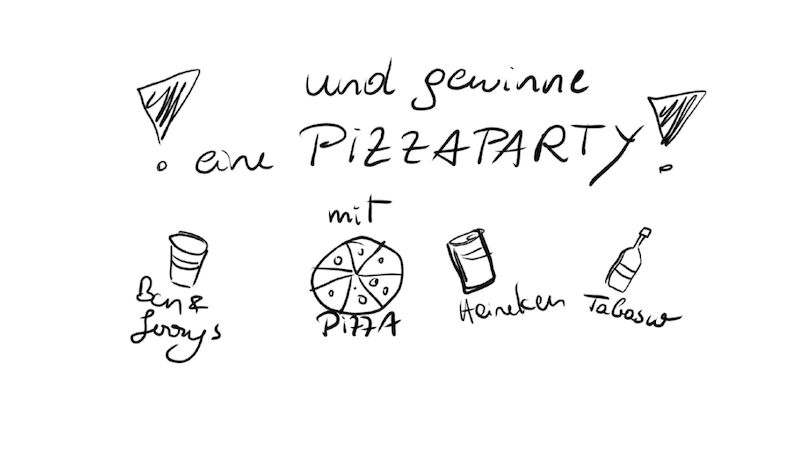 und gewinne
! eine PiZZAPARTY!
mit
Ben &
Jerrys
PiZZA
Heineken
Tabasco